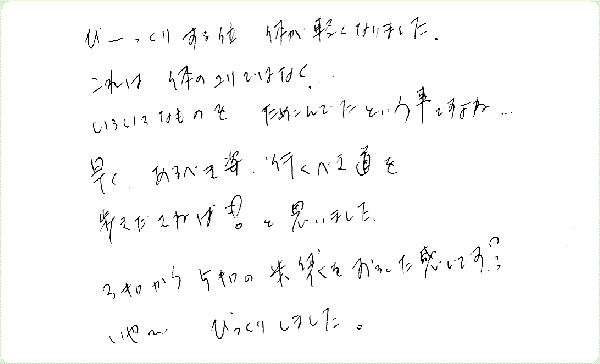 びーっくりする位 体が軽くなりました。
これは 体のコリではなく、
いろいろなものを ためこんでいたという事ですよね…
早く、あるべき姿、行くべき道を
考えださねば!。と思いました。
3キロから5キロの米袋をおろした感じです?
いや〜 びっくりしました。